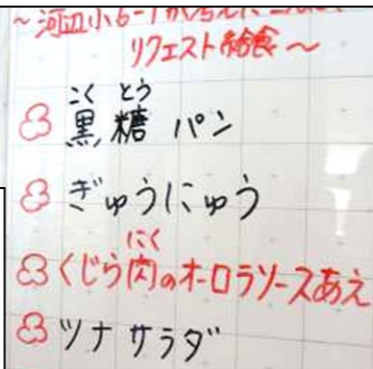 ～河辺小6-1が考えたこんだて
リクエスト給食～
こくとう
黒糖パン
ぎゅうにゅう
にく
くじら肉のオーロラソースあえ
ツナサラダ